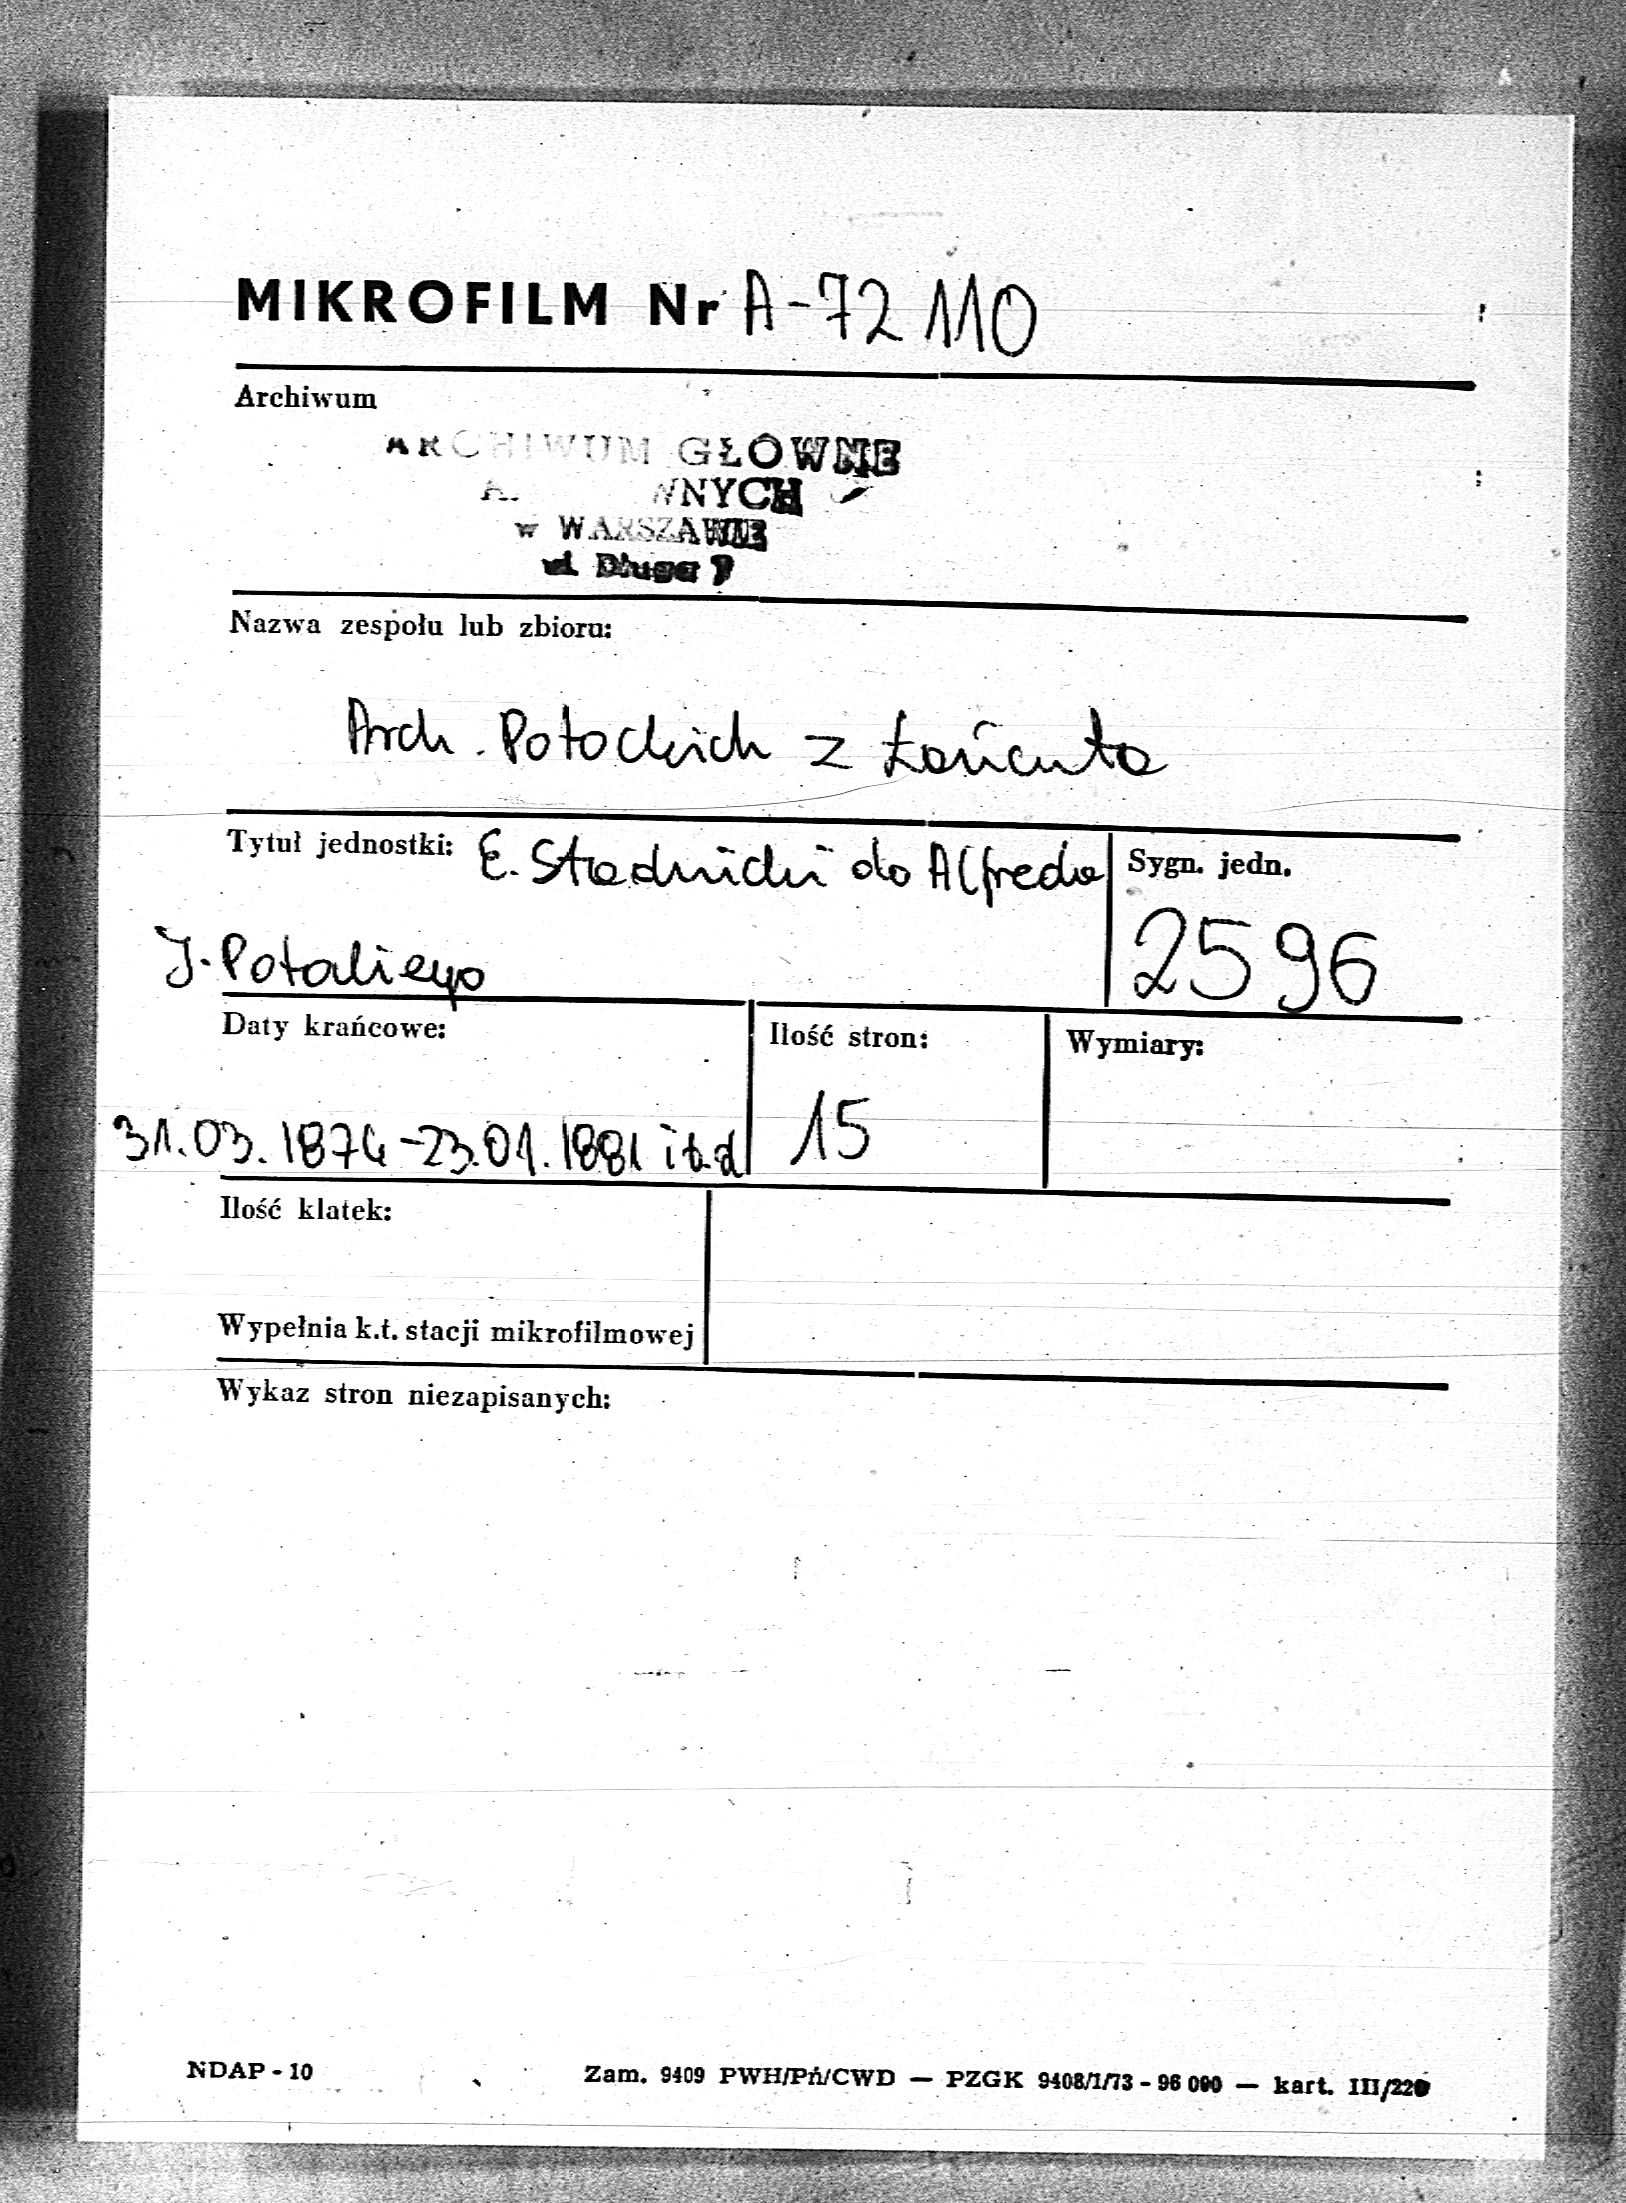 MIKROFILM Nr A-72 110
Archiwum
ARCHIWUM GŁÓWNE
w WARSZAWIE
ul. Długa 7
Nazwa zespołu lub zbioru:
Arch. Potockich z Łańcuta
Tytuł jednostki: E. Stadnicki do Alfreda
Sygn. jedn.
J. Potockiego
2596
Daty krańcowe:
Ilość stron:
Wymiary:
31.03.1874-23.01.1881 i b.d
15
Ilość klatek:
Wypełnia k.t. stacji mikrofilmowej
Wykaz stron niezapisanych:
NDAP - 10
Zam. 9409 PWH/Pń/CWD — PZGK 9408/1/73 - 96 000 — kart. III/220